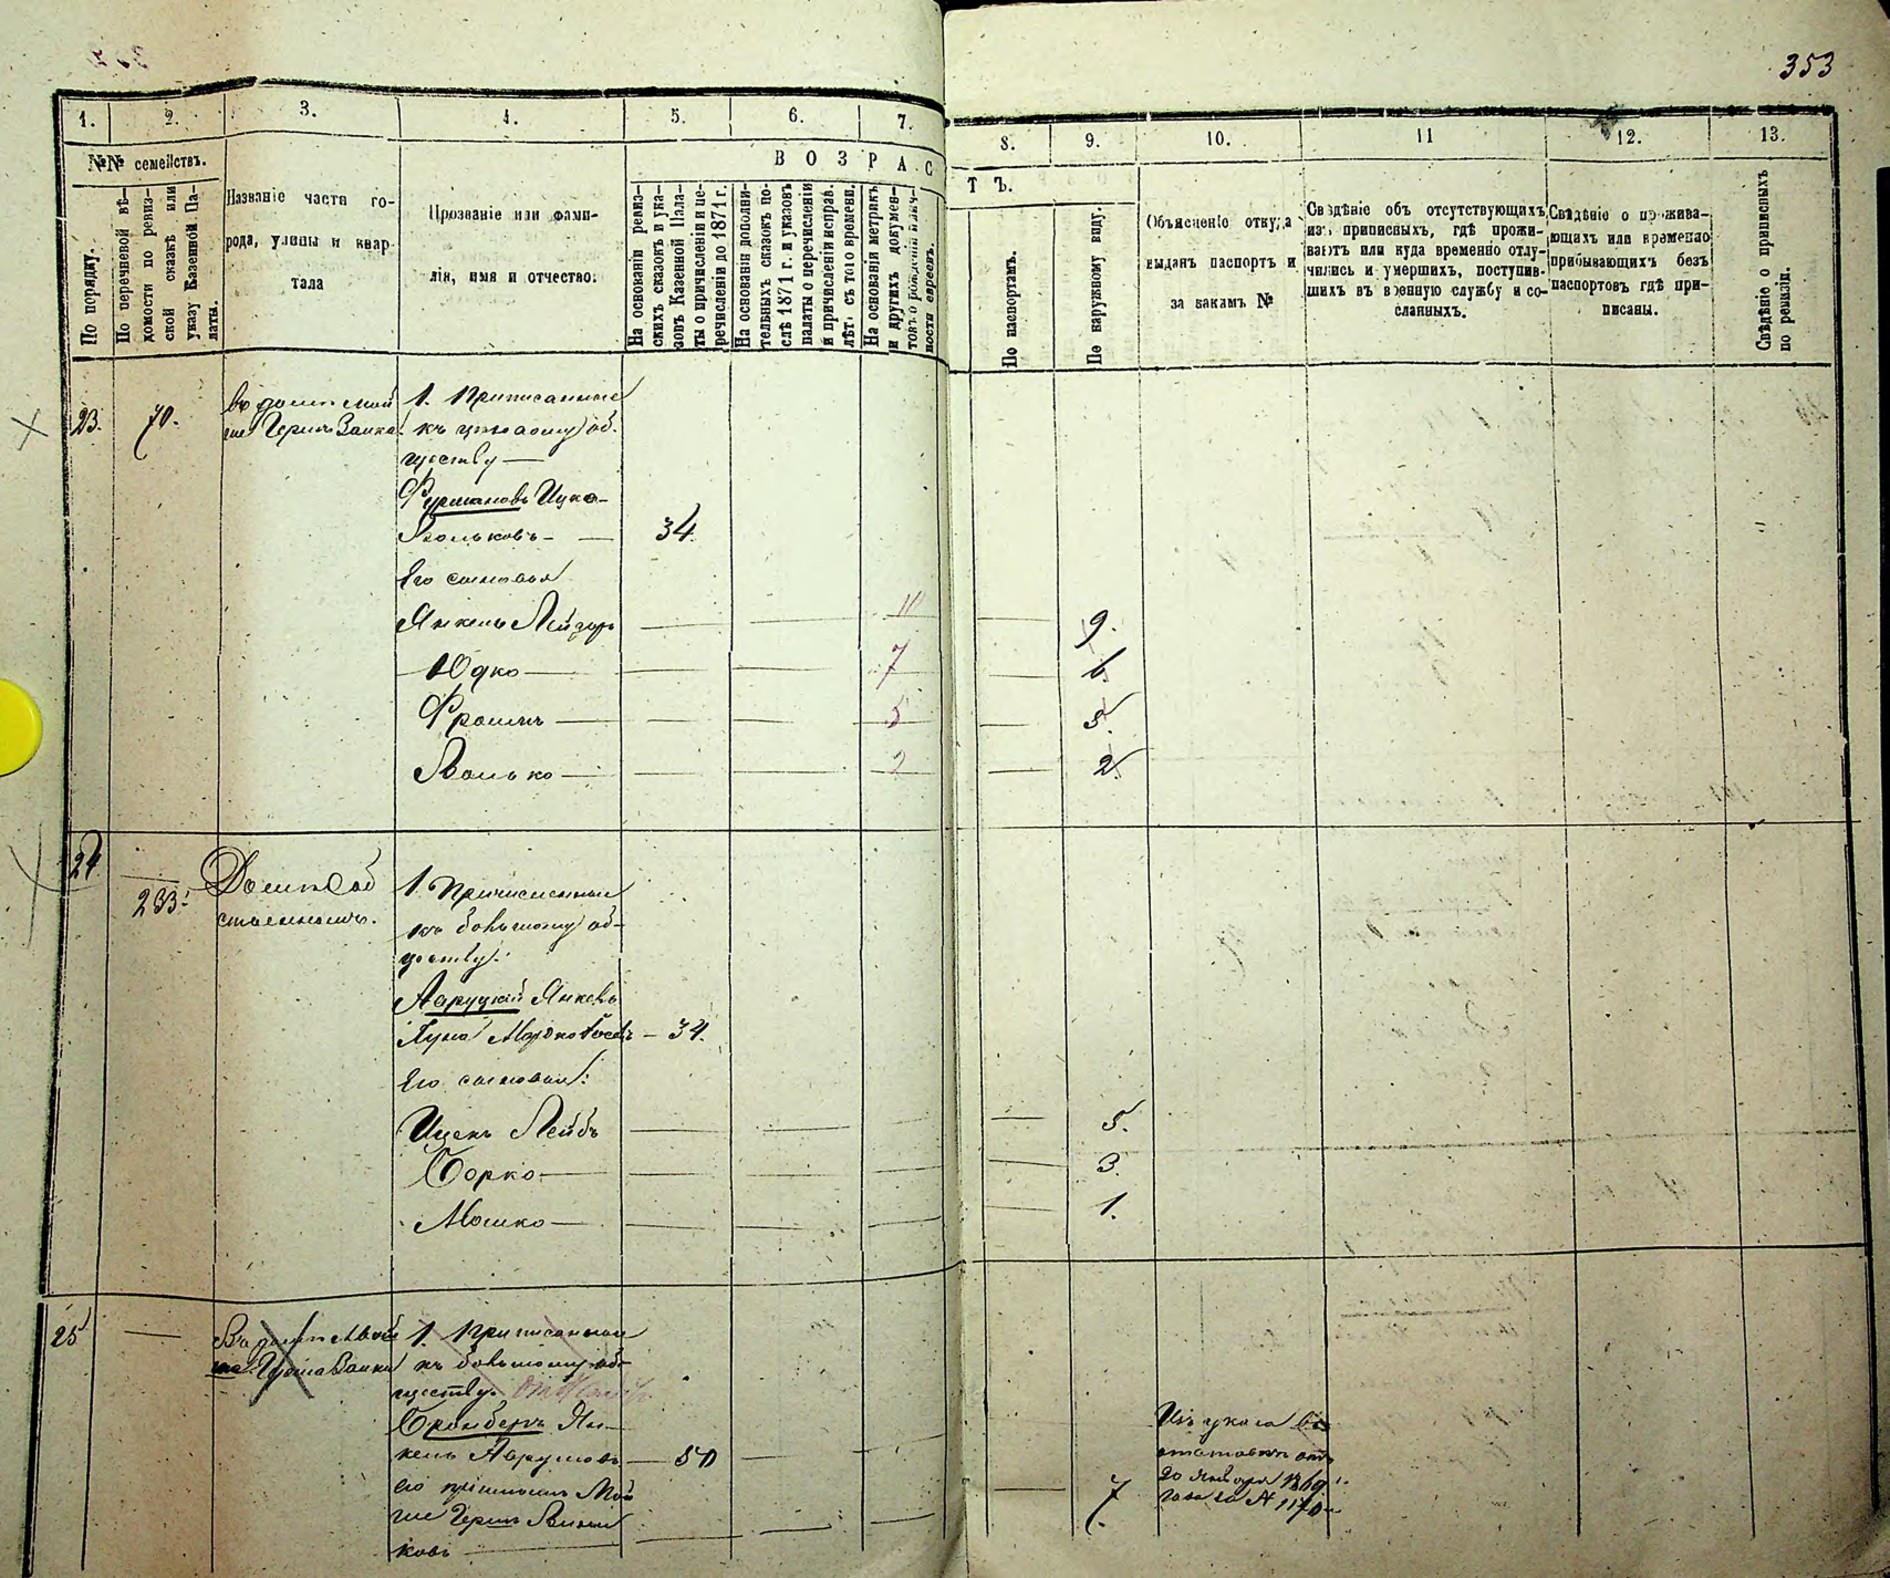 353
1. 2. 3. 4. 5. 6. 7. 8. 9. 10. 11 12. 13.
№№ семействъ.
ВОЗРАСТЪ.
По порядку.
По перечневой вѣ-
домости по ревиз-
ской сказкѣ или
указу Казенной Па-
латы.
Названіе части го-
рода, улицы и квар-
тала
Прозваніе или фами-
лія, имя и отчество.
На основаніи ревиз-
скихъ сказокъ и ука-
зовъ Казенной Пала-
ты о причисленіи и пе-
речисленіи до 1871 г.
На основаніи дополни-
тельныхъ сказокъ по-
слѣ 1871 г. и указовъ
палаты о перечисленіи
и причисленіи исправ.
лѣтъ съ того времени.
На основаніи метрикъ
и другихъ докумен-
товъ о рожденіи
ности евреевъ.
По паспортамъ.
По наружному виду.
Объясненіе откуда
выданъ паспортъ и
за какимъ №
Свѣдѣніе объ отсутствующихъ
изъ приписныхъ, гдѣ прожи-
ваютъ или куда временно отлу-
чились и умершихъ, поступив-
шихъ въ военную службу и со-
сланныхъ.
Свѣдѣніе о прожива-
ющихъ или временно
прибывающихъ безъ
паспортовъ гдѣ при-
писаны.
Свѣдѣніе о приписныхъ
по ревизіи.
23. 70. въ домѣ Мой
ше Герша Заика.
1. Приписанные
къ цеховому об-
ществу —
Фурмановъ Ицко-
Вольковъ — 34
Его сыновья
Янкель Лейзоръ 9.
Юдко — 7 6
Фроимъ — 5 5.
Волько — 2 2.
24 233. Домѣ Соб
ственномъ.
1. Причисленные
къ большому об-
ществу:
Авруцкій Янкель
Мордковъ — 34.
Его сыновья:
Ицекъ Лейбъ 5.
Борко — 3.
Мошко — 1.
25 — Въ домѣ Мой
ше
1. Приписанные
къ большому об-
ществу.
Бронбергъ Ян-
кель Аврумовъ — 50
его Мой
ше Гершъ
ковъ — 7
Изъ указа
отъ
20 Января 1869
года за № 1170